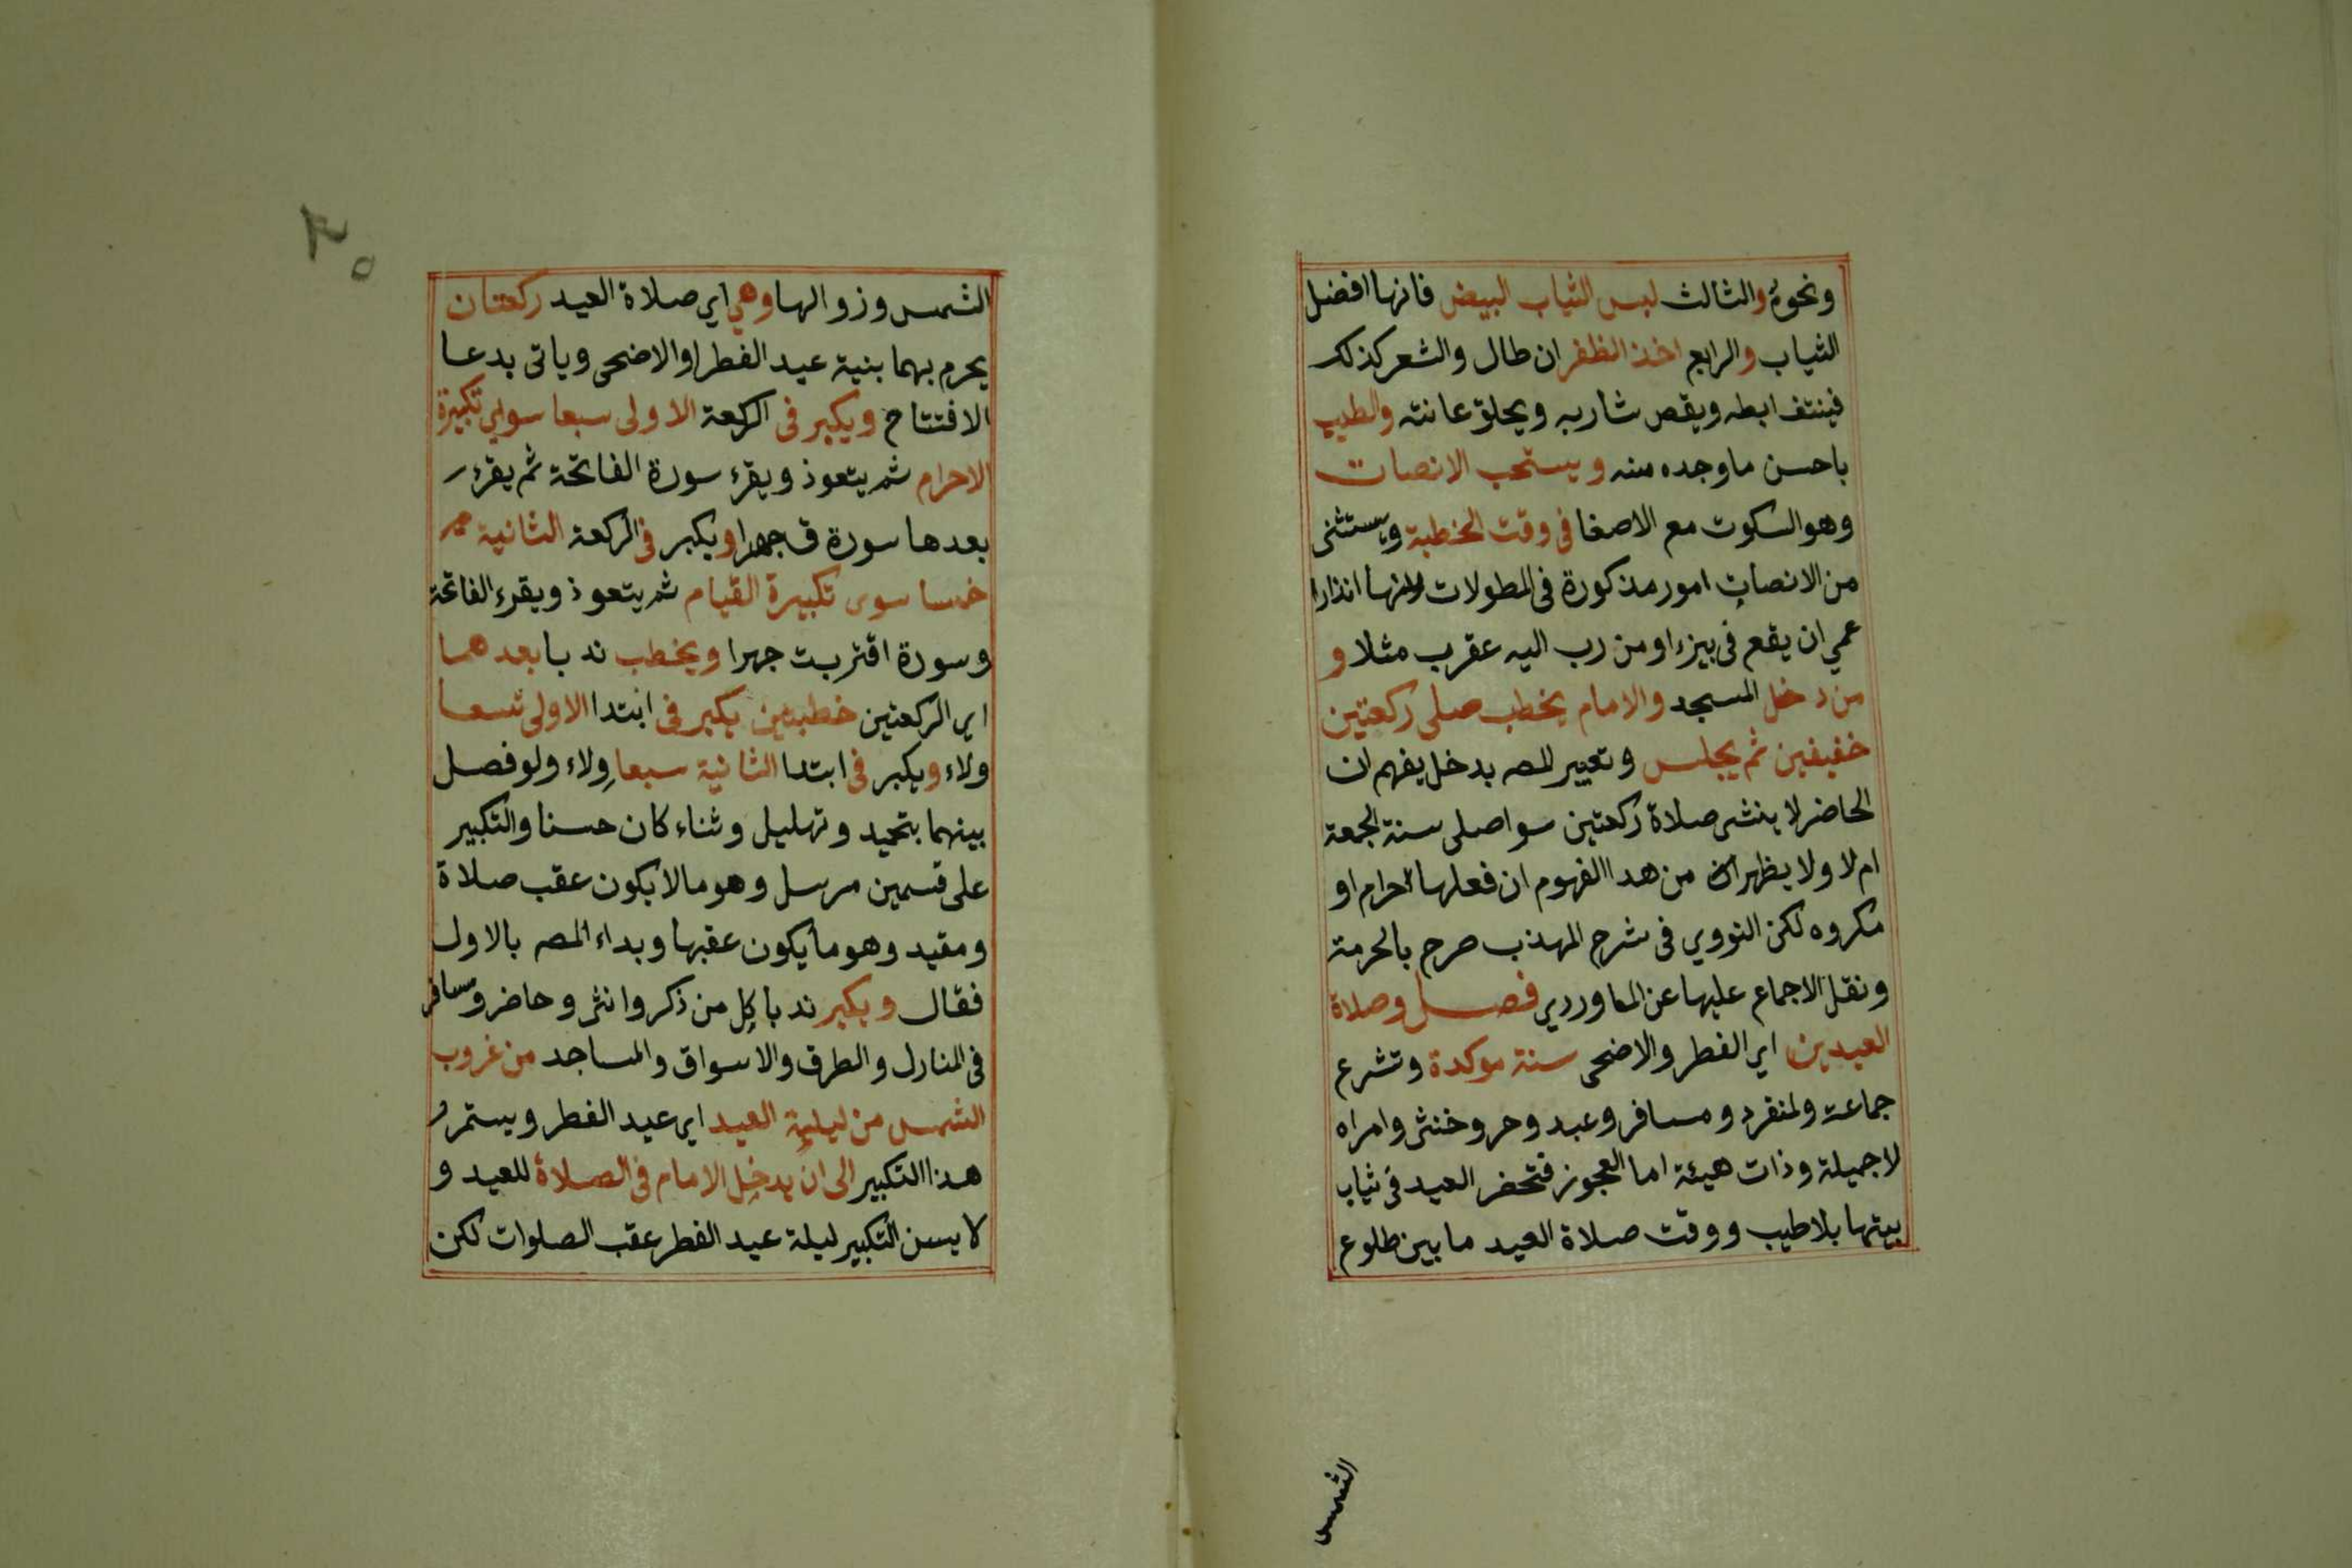 ونحوه والثالث لبس الثياب البيض فانها افضل
الثياب والرابع اخذ الظفر ان طال والشعر كذلك
فينتف ابطه ويقص شاربه ويحلق عانته والطيب
باحسن ما وجده منه ويستحب الانصات
وهو السكوت مع الاصغا فى وقت الخطبة ويستثنى
من الانصات امور مذكورة فى المطولات منها انذار
عمي ان يقع فى بيرء او من دب اليه عقرب مثلا و
من دخل المسجد والامام يخطب صلى ركعتين
خفيفين ثم يجلس وتعبير المصه بدخل يفهم ان
الحاضر لا ينشى صلاة ركعتين سوا صلى سنة الجمعة
ام لا ولا يظهر من هدا المفهوم ان فعلها حرام او
مكروه لكن النووي فى شرح المهذب صرح بالحرمة
ونقل الاجماع عليها عن الماوردي فصل وصلاة
العيدين اي الفطر والاضحى سنة موكدة وتشرع
جماعة ولمنفرد ومسافر وعبد وحر وخنثى وامراه
لا جميلة وذات هيئة اما العجوز فتحضر العيد فى ثياب
بيتها بلا طيب ووقت صلاة العيد ما بين طلوع
الشمس
٢٠
الشمس وزوالها وهي اي صلاة العيد ركعتان
يحرم بهما بنية عيد الفطر او الاضحى وياتى بدعا
الافتتاح ويكبر فى الركعة الاولى سبعا سواي تكبيرة
الاحرام ثم يتعوذ ويقرء سورة الفاتحة ثم يقرء
بعدها سورة ق جهرا ويكبر فى الركعة الثانية
خمسا سوى تكبيرة القيام ثم يتعوذ ويقرء الفاتحة
وسورة اقتربت جهرا ويخطب ندبا بعدهما
اي الركعتين خطبتين يكبر فى ابتدا الاولى تسعا
ولاء ويكبر فى ابتدا الثانية سبعا ولاء ولو فصل
بينهما بتحميد وتهليل وثناء كان حسنا والتكبير
على قسمين مرسل وهو ما لا يكون عقب صلاة
ومقيد وهو ما يكون عقبها وبداء المصه بالاول
فقال ويكبر ندبا كل من ذكر وانثى وحاضر ومسافر
فى المنازل والطرق والاسواق والمساجد من غروب
الشمس من ليلة العيد اي عيد الفطر ويستمر
هذا التكبير الى ان يدخل الامام فى الصلاة للعيد و
لا يسن التكبير ليلة عيد الفطر عقب الصلوات لكن